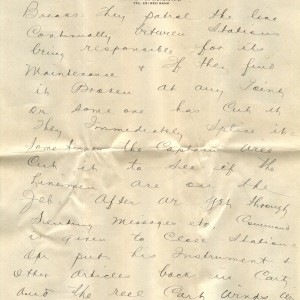 Breaks. They patrol the line
Continually between Stations
being responsible for its
Maintenance & If they find
it Broken at any Point
or some one has Cut it
They Immediately Splice it.
the Captain
Cut it to see if the
Linemen are on the
Job After we get through
Sending Messages etc Command
is given to Close Station &
Opr put his Instrument &
Other Articles back in Cart,
And the reel Cart Winds up